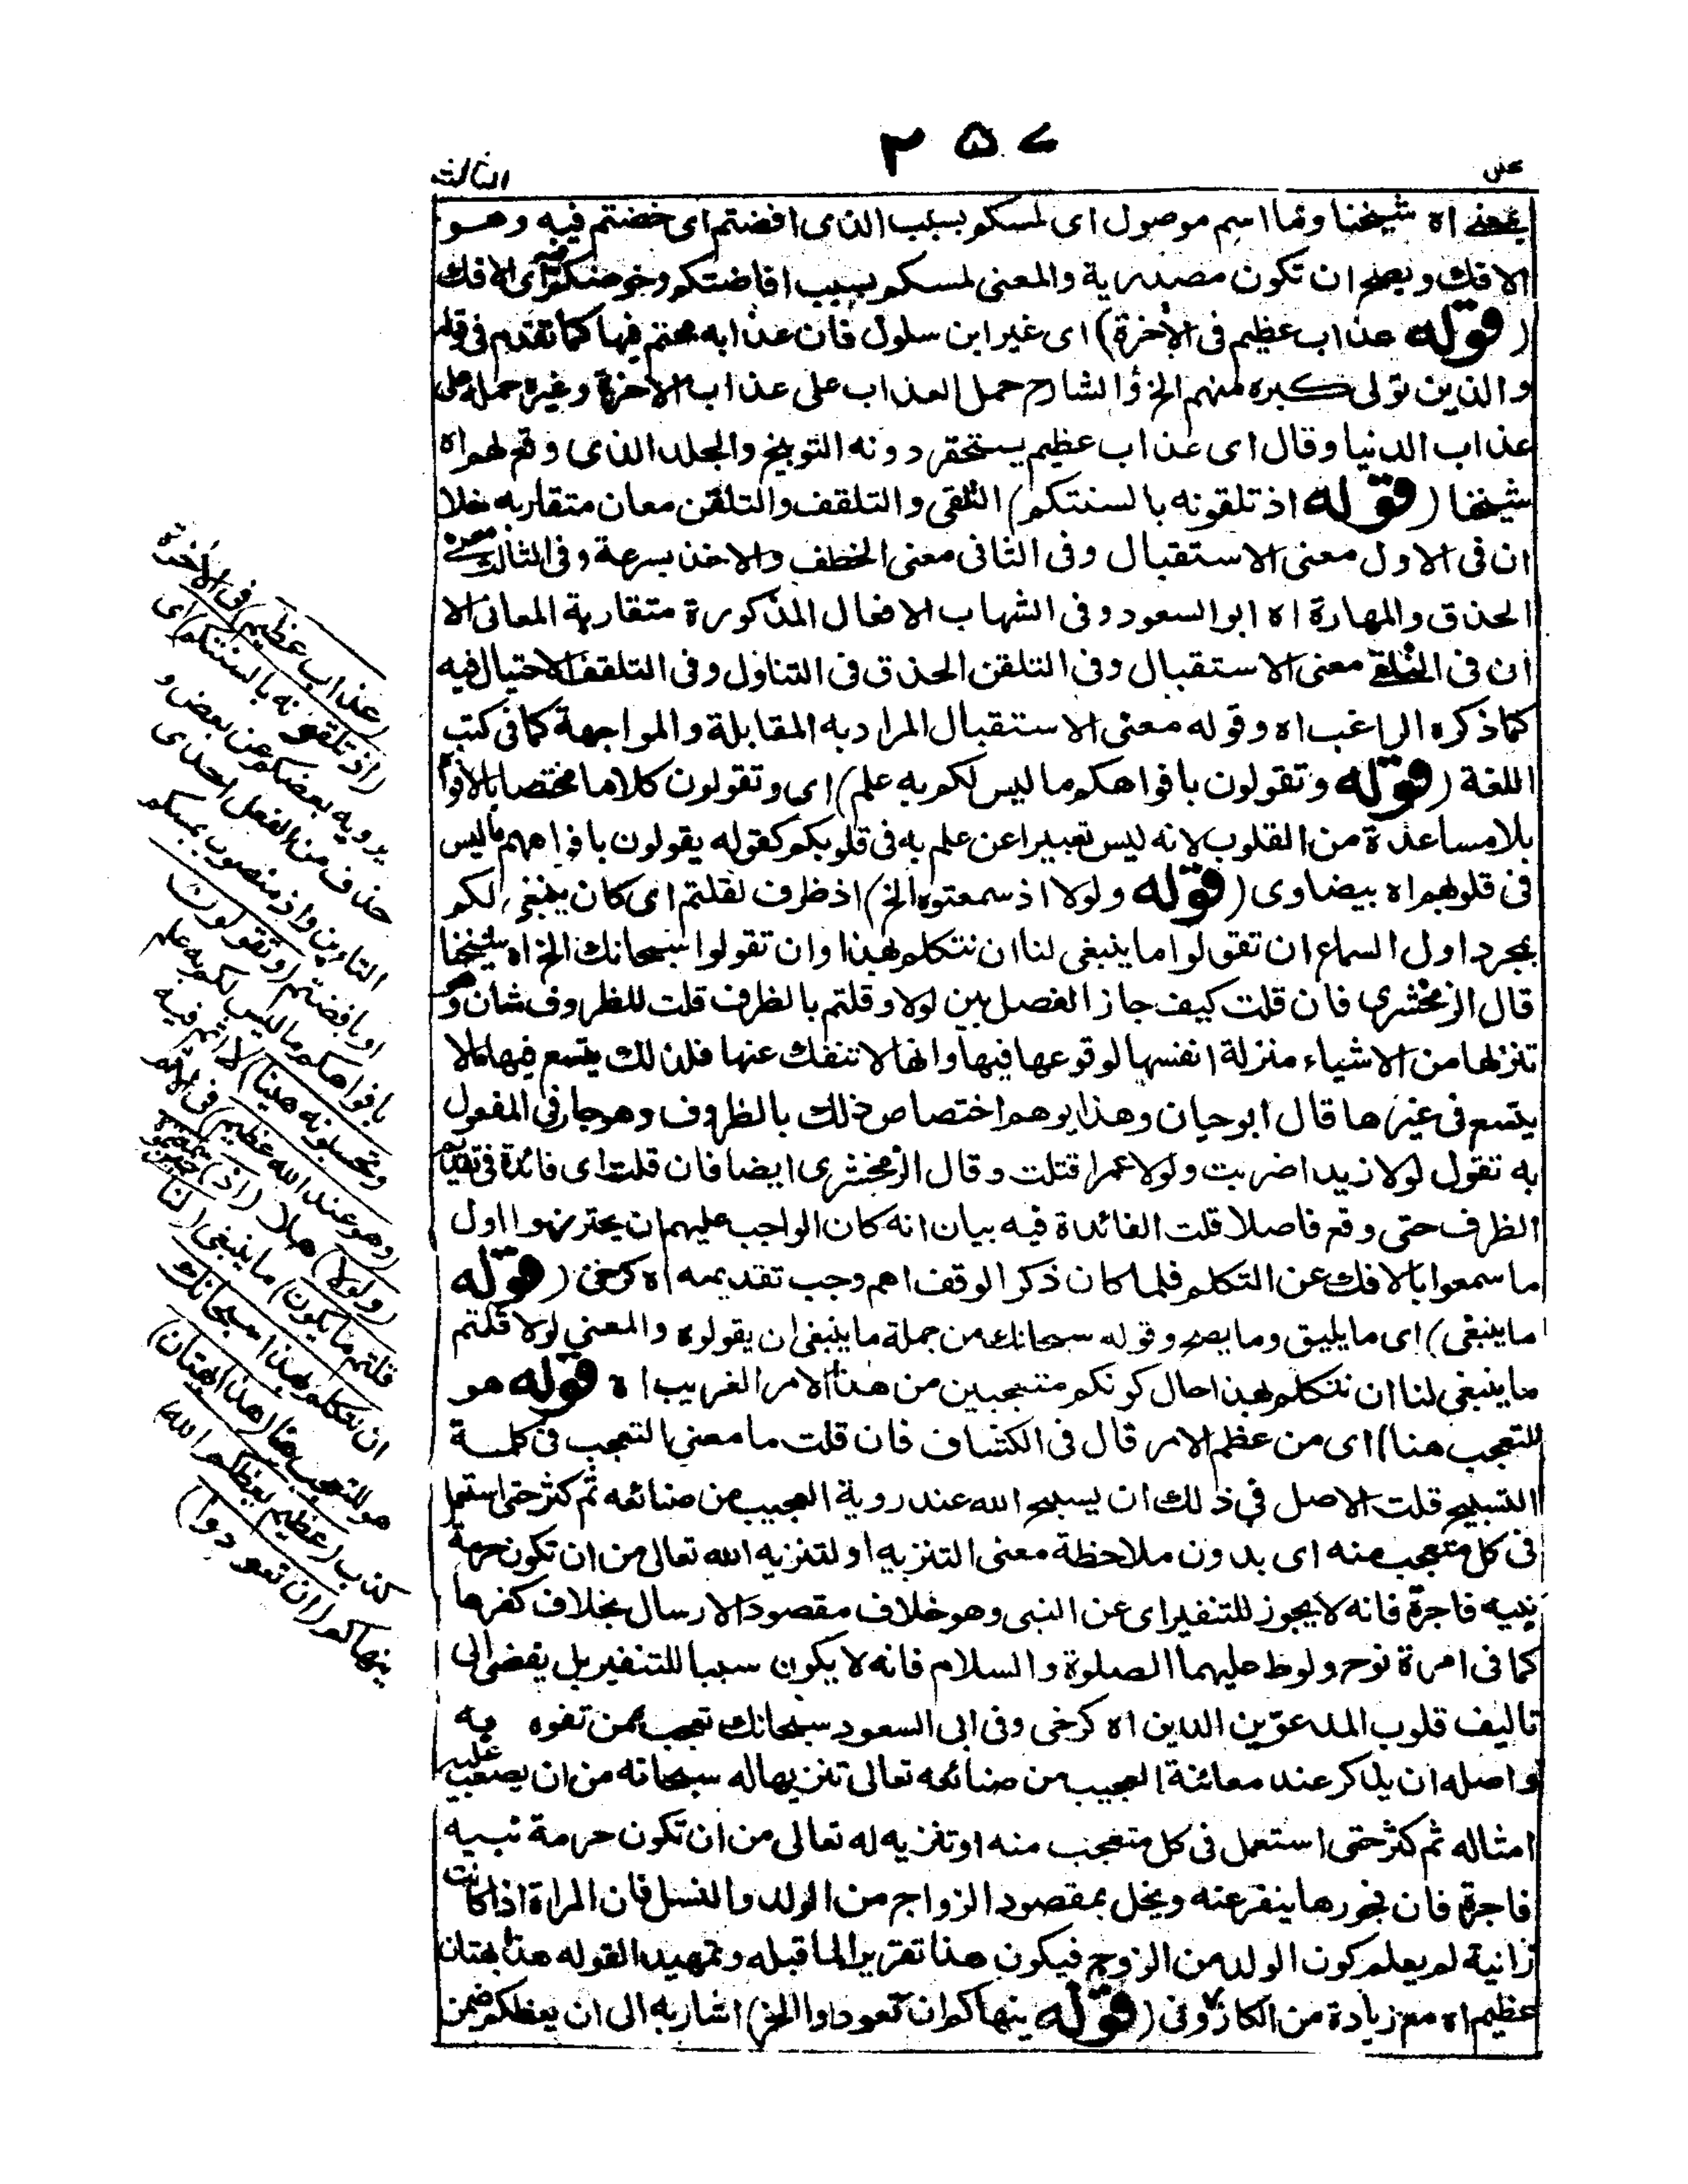 ٢٥٧
الثالث
اه شيخنا وما اسم موصول اى لمسكم بسبب الذى افضتم اى خضتم فيه وهو
الافك ويصح ان تكون مصدرية والمعنى لمسكم بسبب افاضتكم وخوضكم فى الافك
(قوله عذاب عظيم فى الاخرة) اى غير ابن سلول فان عذابه محتم فيها كما تقدم فى قوله
والذين تولى كبره منهم الخ والشارح حمل العذاب على عذاب الاخرة وغيره حمله على
عذاب الدنيا وقال اى عذاب عظيم يستحقر دونه التوبيخ والجلد الذى وقع لهم اه
شيخنا (قوله اذ تلقونه بالسنتكم) التلقى والتلقف والتلقن معان متقاربه خلا
ان فى الاول معنى الاستقبال وفى الثانى معنى الخطف والاخذ بسرعة وفى الثالث معنى
الحذق والمهارة اه ابو السعود وفى الشهاب الافعال المذكورة متقاربة المعانى الا
ان فى التلقى معنى الاستقبال وفى التلقن الحذق فى التناول وفى التلقف الاحتيال فيه
كما ذكره الراغب اه وقوله معنى الاستقبال المراد به المقابلة والمواجهة كما فى كتب
اللغة (قوله وتقولون بافواهكم ما ليس لكم به علم) اى وتقولون كلاما مختصا بالافواه
بلا مساعدة من القلوب لانه ليس تعبيرا عن علم به فى قلوبكم كقوله يقولون بافواههم ما ليس
فى قلوبهم اه بيضاوى (قوله ولولا اذ سمعتوه الخ) اذ ظرف لقلتم اى كان ينبغى لكم
بمجرد اول السماع ان تقولوا ما ينبغى لنا ان نتكلم بهذا وان تقولوا سبحانك الخ اه شيخنا
قال الزمخشرى فان قلت كيف جاز الفصل بين لولا وقلتم بالظرف قلت للظروف شان وهو
تنزلها من الاشياء منزلة انفسها لوقوعها فيها وانها لا تنفك عنها فلذلك يتسع فيها ما لا
يتسع فى غيرها قال ابو حيان وهذا يوهم اختصاص ذلك بالظروف وهو جار فى المفعول
به تقول لولا زيدا ضربت ولولا عمرا قتلت وقال الزمخشرى ايضا فان قلت اى فائدة فى تقديم
الظرف حتى وقع فاصلا قلت الفائدة فيه بيان انه كان الواجب عليهم ان يحترزوا اول
ما سمعوا بالافك عن التكلم فلما كان ذكر الوقف اهم وجب تقديمه اه كرخى (قوله
ما ينبغى) اى ما يليق وما يصح وقوله سبحانك من جملة ما ينبغى ان يقولوه والمعنى لولا قلتم
ما ينبغى لنا ان نتكلم بهذا حال كونكم متعجبين من هذا الامر الغريب اه قوله هو
للتعجب هنا) اى من عظم الامر قال فى الكشاف فان قلت ما معنى التعجب فى كلمة
التسبيح قلت الاصل فى ذلك ان يسبح الله عند روية العجيب من صنائعه ثم كثر حتى استعمل
فى كل متعجب منه اى بدون ملاحظة معنى التنزيه او لتنزيه الله تعالى من ان تكون حرمة
نبيه فاجرة فانه لا يجوز للتنفير اى عن النبى وهو خلاف مقصود الارسال بخلاف كفرها
كما فى امرة نوح ولوط عليهما الصلوة والسلام فانه لا يكون سببا للتنفير بل يفضى الى
تاليف قلوب المدعوين الدين اه كرخى وفى ابى السعود سبحانك تعجب ممن تفوه به
واصله ان يذكر عند معائنة العجيب من صنائعه تعالى تنزيها له سبحانه من ان يصعب عليه
امثاله ثم كثر حتى استعمل فى كل متعجب منه او تنزيه له تعالى من ان تكون حرمة نبيه
فاجرة فان فجورها ينفر عنه ويخل بمقصود الزواج من الولد والنسل فان المراة اذا كانت
زانية لم يعلم كون الولد من الزوج فيكون هذا تقريرا لما قبله وتمهيدا لقوله هذا بهتان
عظيم اه مع زيادة من الكازرونى (قوله ينهاكم ان تعودوا الخ) اشار به الى ان يعظكم ضمن
(عذاب عظيم) فى الاخرة
(اذ تلقونه بالسنتكم) اى
يرويه بعضكم عن بعض و
حذف من الفعل احدى
التاءين واذ منصوب بمسكم
او بافضتم (وتقولون
بافواهكم ما ليس لكم به علم
وتحسبونه هينا) لا اثم فيه
(وهو عند الله عظيم) فى الاثم
(ولولا) هلا (اذ) سمعتموه
قلتم ما يكون) ما ينبغى (لنا
ان نتكلم بهذا سبحانك
هو للتعجب هنا (هذا بهتان)
كذب (عظيم يعظكم الله)
ينهاكم (ان تعودوا)